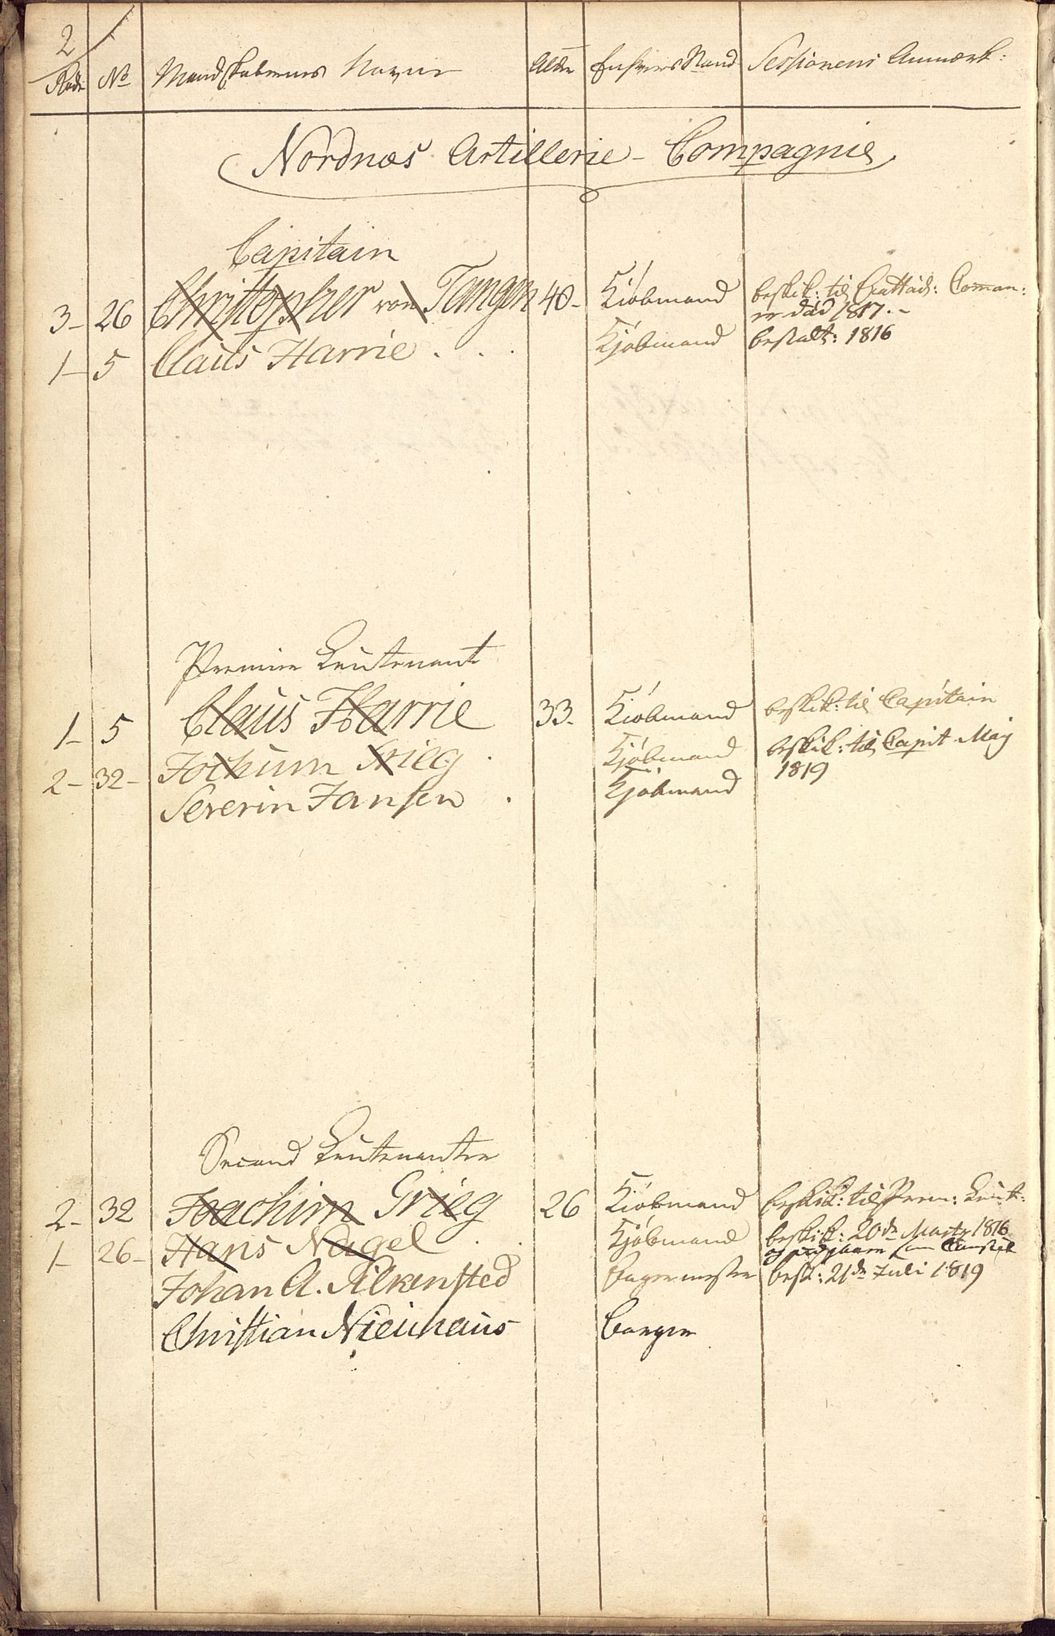 2
Rode No Mandskabernes Navne Alder Enhvers Stand Sessionens Anmærk:
Nordnæs Artillerie-Compagnie
Capitain
3- 26 Christopher von Tangen 40- Kiöbmand beskik: til Coman:
er död 1817.-
1- 5 Claus Harrie . . . Kjöbmand bestalt: 1816
Premier Leutenant
1- 5 Claus Harrie 33- Kiöbmand beskik: til Capitain
2- 32- Jochum Grieg . Kjöbmand beskik: til Capit Maj
1819
Severin Jansen . Kjöbmand
Second Leutenanter
2- 32 Joachim Grieg 26 Kiöbmand beskik: til Prem: Leut:
1- 26- Hans Nagel . . Kjöbmand beskik: 20de Marts 1816
Johan A. Bagermester besk: 21de Juli 1819
Christian Nieuhaus Borger